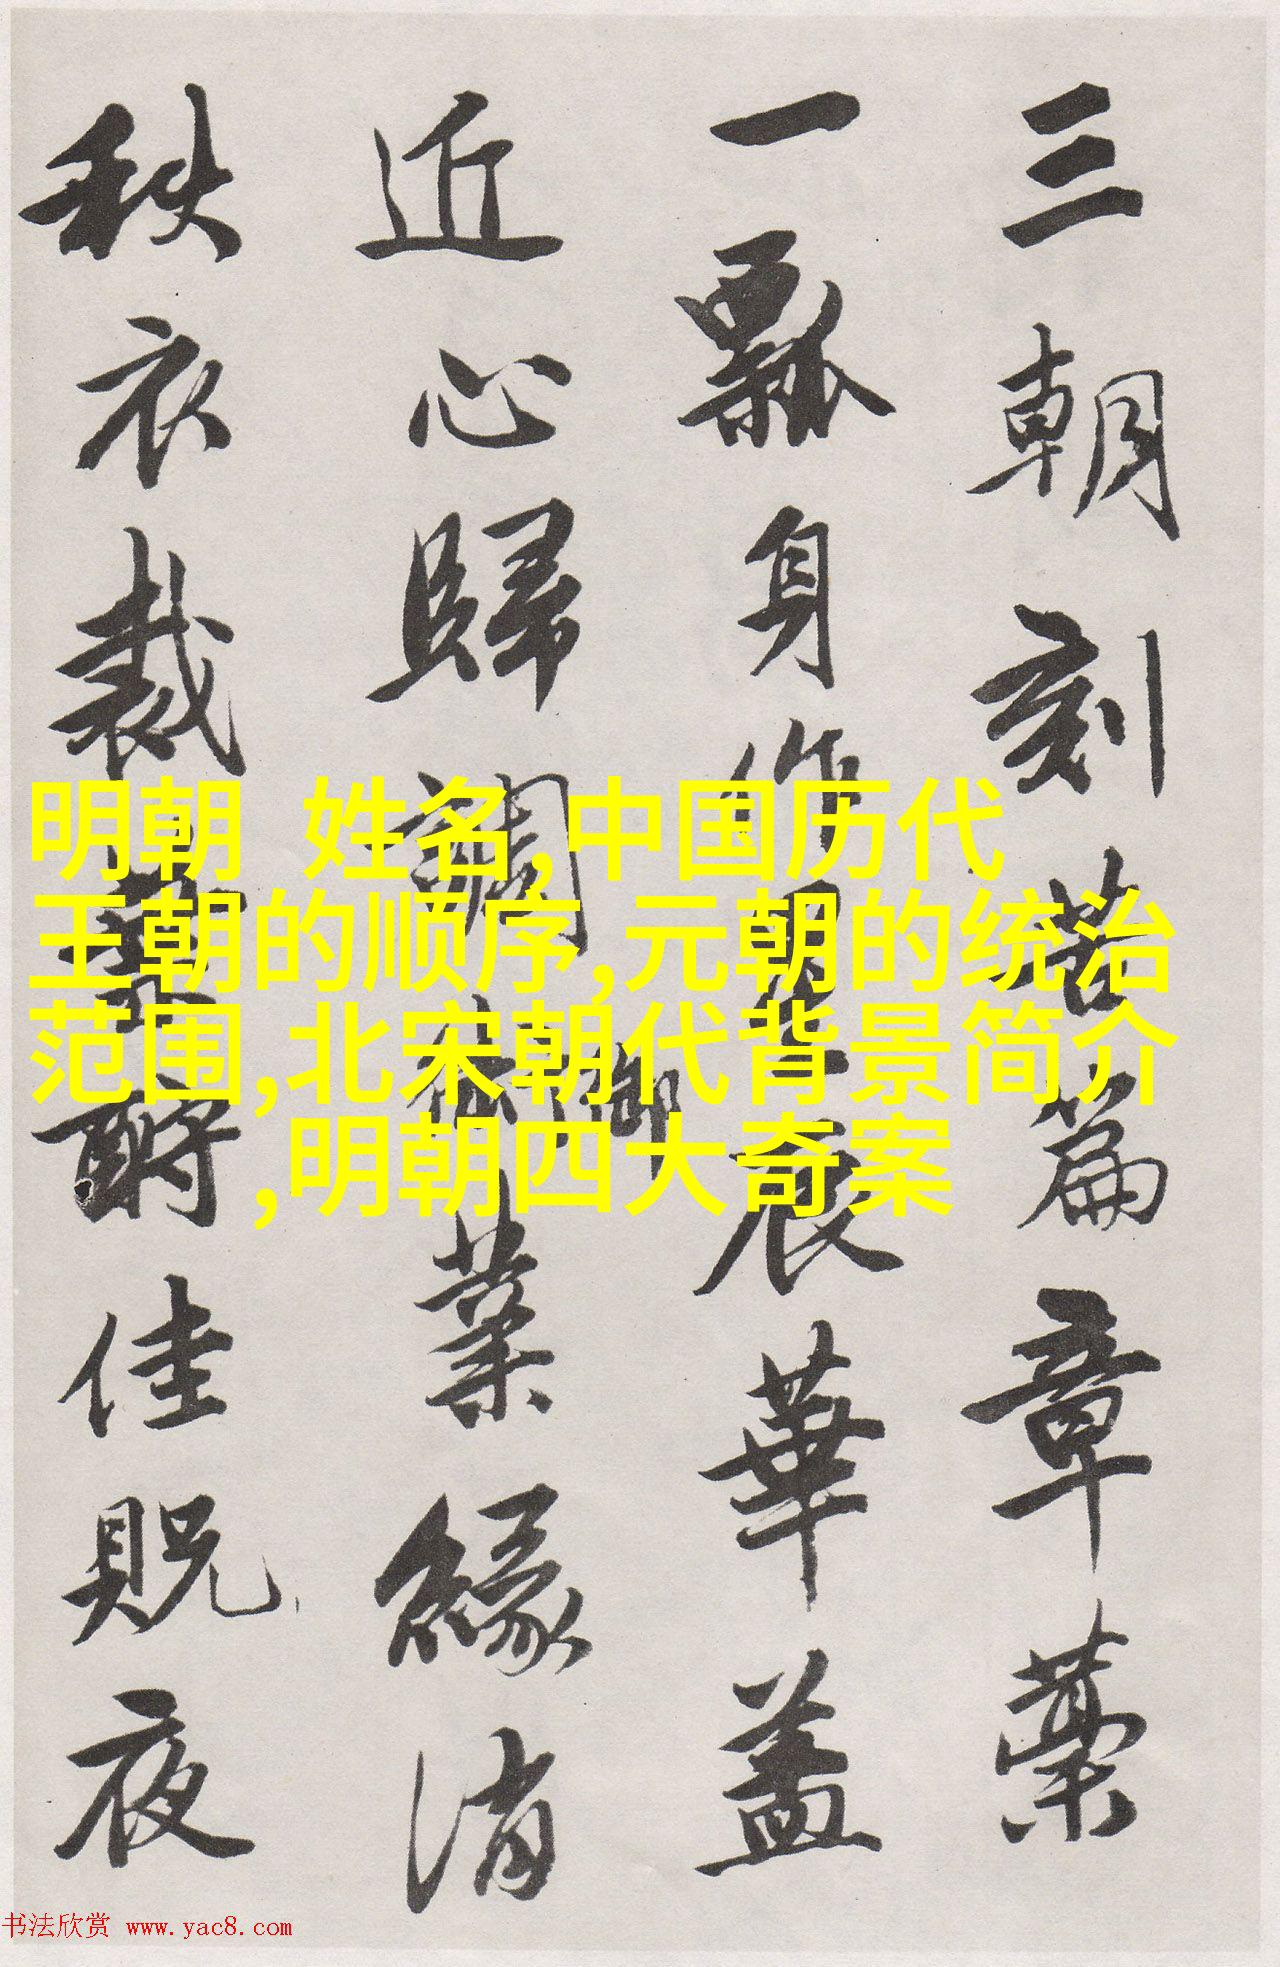 三朝刻苦篇章藁
一瓢身作衰華蓋
近心歸調御業緣消
秩衣裁酬佳貺夜
明朝 姓名,中国历代
王朝的顺序,元朝的统治
范围,北宋朝代背景简介
,明朝四大奇案
书法欣赏 www.yac8.com